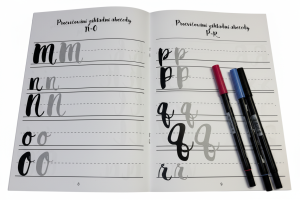 Procvičování základní abecedy
M-O
M m
n n
N n
o o
O o
Procvičování základní abecedy
P-R
p p
P p
q q
Q q
r r